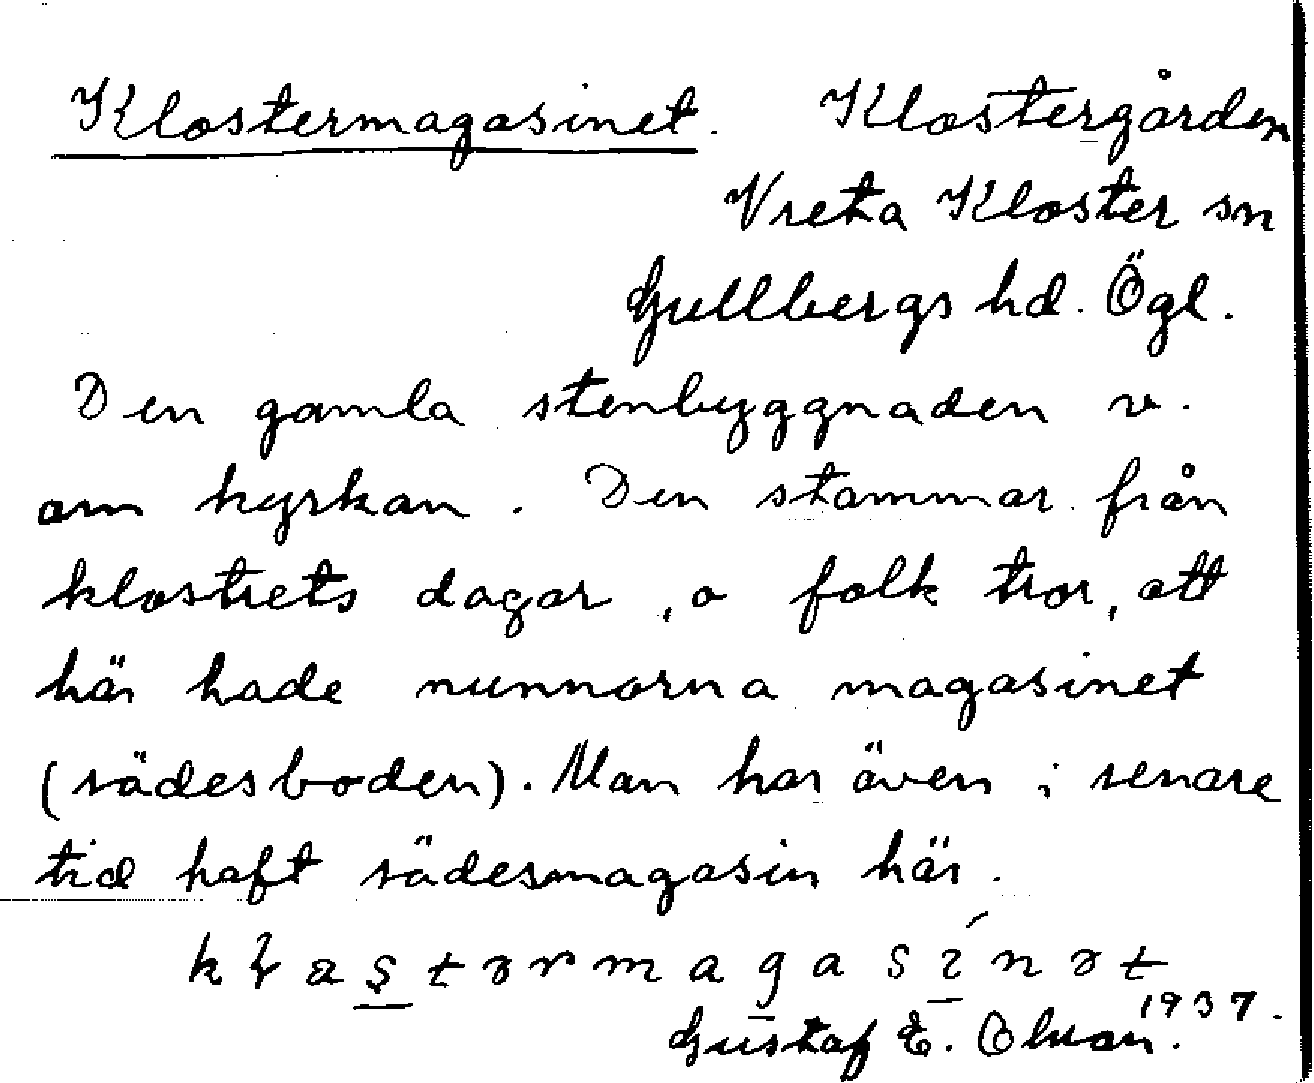 Klostermagasinet. Klostergården
Vreta Kloster sn
Gullbergs hd. Ögl.
Den gamla stenbyggnaden v.
om kyrkan. Den stammar från
klostrets dagar, o folk tror, att
här hade nunnorna magasinet
(sädesboden). Man har även i senare
tid haft sädesmagasin här.
1937.
Gustaf E.